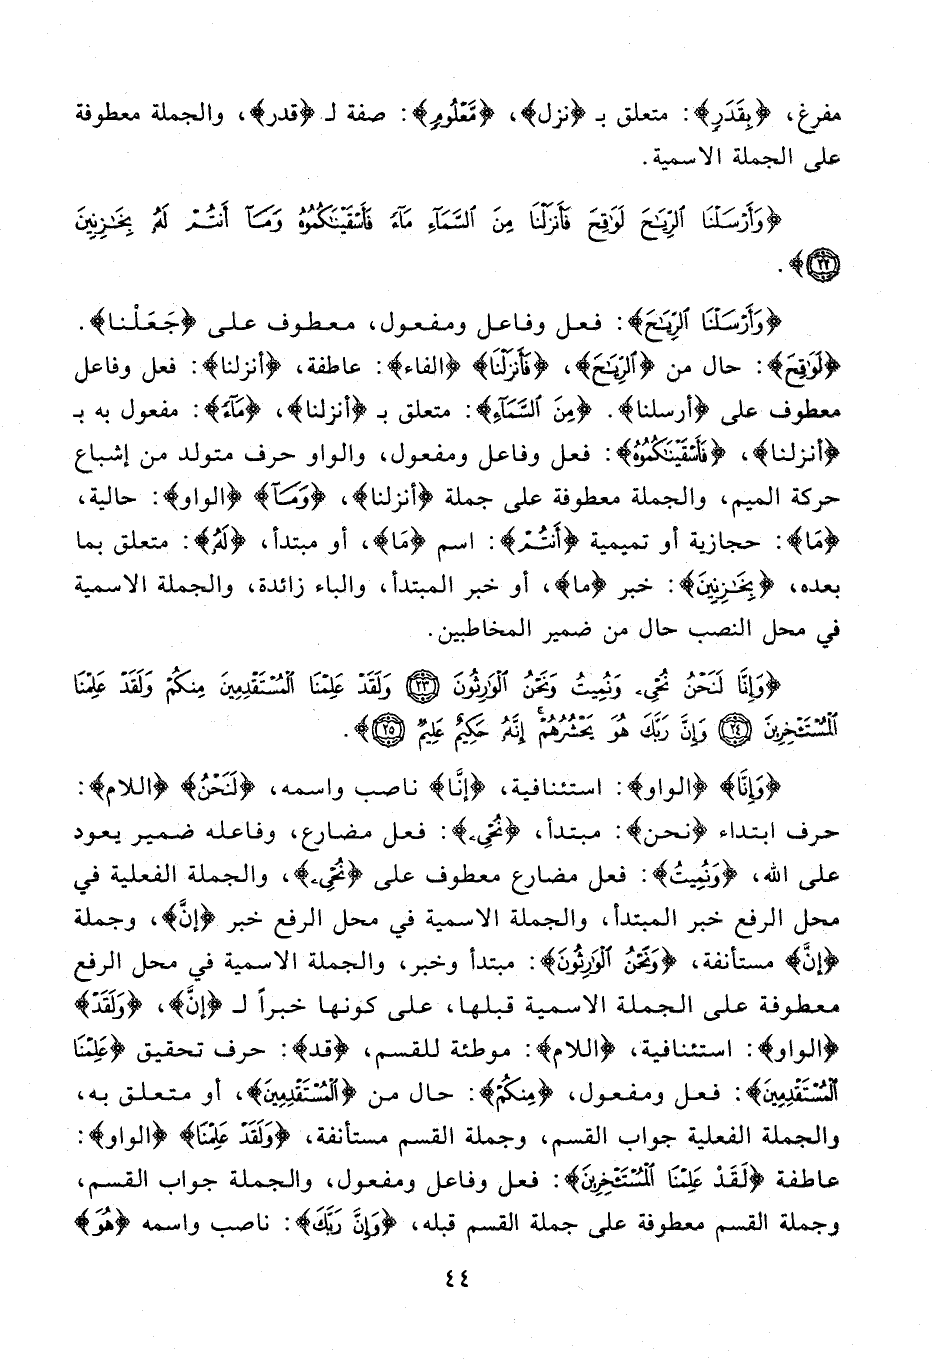 مفرغ، ﴿بِقَدَرٍ﴾: متعلق بـ ﴿نزل﴾، ﴿مَّعْلُومٍ﴾: صفة لـ ﴿قدر﴾، والجملة معطوفة
على الجملة الاسمية.
﴿وَأَرْسَلْنَا ٱلرِّيَٰحَ لَوَٰقِحَ فَأَنزَلْنَا مِنَ ٱلسَّمَآءِ مَآءً فَأَسْقَيْنَٰكُمُوهُ وَمَآ أَنتُمْ لَهُۥ بِخَٰزِنِينَ
٢٢﴾.
﴿وَأَرْسَلْنَا ٱلرِّيَٰحَ﴾: فعل وفاعل ومفعول، معطوف على ﴿جَعَلْنا﴾.
﴿لَوَٰقِحَ﴾: حال من ﴿ٱلرِّيَٰحَ﴾، ﴿فَأَنزَلْنَا﴾ ﴿الفاء﴾: عاطفة، ﴿أنزلنا﴾: فعل وفاعل
معطوف على ﴿أرسلنا﴾. ﴿مِنَ ٱلسَّمَآءِ﴾: متعلق بـ ﴿أنزلنا﴾، ﴿مَآءً﴾: مفعول به بـ
﴿أنزلنا﴾، ﴿فَأَسْقَيْنَٰكُمُوهُ﴾: فعل وفاعل ومفعول، والواو حرف متولد من إشباع
حركة الميم، والجملة معطوفة على جملة ﴿أنزلنا﴾، ﴿وَمَآ﴾ ﴿الواو﴾: حالية،
﴿مَا﴾: حجازية أو تميمية ﴿أَنتُمْ﴾: اسم ﴿مَا﴾، أو مبتدأ، ﴿لَهُۥ﴾: متعلق بما
بعده، ﴿بِخَٰزِنِينَ﴾: خبر ﴿ما﴾، أو خبر المبتدأ، والباء زائدة، والجملة الاسمية
في محل النصب حال من ضمير المخاطبين.
﴿وَإِنَّا لَنَحْنُ نُحْىِۦ وَنُمِيتُ وَنَحْنُ ٱلْوَٰرِثُونَ ٢٣ وَلَقَدْ عَلِمْنَا ٱلْمُسْتَقْدِمِينَ مِنكُمْ وَلَقَدْ عَلِمْنَا
ٱلْمُسْتَـْٔخِرِينَ ٢٤ وَإِنَّ رَبَّكَ هُوَ يَحْشُرُهُمْ ۚ إِنَّهُۥ حَكِيمٌ عَلِيمٌ ٢٥﴾.
﴿وَإِنَّا﴾ ﴿الواو﴾: استئنافية، ﴿إِنَّا﴾ ناصب واسمه، ﴿لَنَحْنُ﴾ ﴿اللام﴾:
حرف ابتداء ﴿نحن﴾: مبتدأ، ﴿نُحْىِۦ﴾: فعل مضارع، وفاعله ضمير يعود
على الله، ﴿وَنُمِيتُ﴾: فعل مضارع معطوف على ﴿نُحْىِۦ﴾، والجملة الفعلية في
محل الرفع خبر المبتدأ، والجملة الاسمية في محل الرفع خبر ﴿إنَّ﴾، وجملة
﴿إنَّ﴾ مستأنفة، ﴿وَنَحْنُ ٱلْوَٰرِثُونَ﴾: مبتدأ وخبر، والجملة الاسمية في محل الرفع
معطوفة على الجملة الاسمية قبلها، على كونها خبراً لـ ﴿إنَّ﴾، ﴿وَلَقَدْ﴾
﴿الواو﴾: استئنافية، ﴿اللام﴾: موطئة للقسم، ﴿قد﴾: حرف تحقيق ﴿عَلِمْنَا
ٱلْمُسْتَقْدِمِينَ﴾: فعل ومفعول، ﴿مِنكُمْ﴾: حال من ﴿ٱلْمُسْتَقْدِمِينَ﴾، أو متعلق به،
والجملة الفعلية جواب القسم، وجملة القسم مستأنفة، ﴿وَلَقَدْ عَلِمْنَا﴾ ﴿الواو﴾:
عاطفة ﴿لَقَدْ عَلِمْنَا ٱلْمُسْتَـْٔخِرِينَ﴾: فعل وفاعل ومفعول، والجملة جواب القسم،
وجملة القسم معطوفة على جملة القسم قبله، ﴿وَإِنَّ رَبَّكَ﴾: ناصب واسمه ﴿هُوَ﴾
٤٤